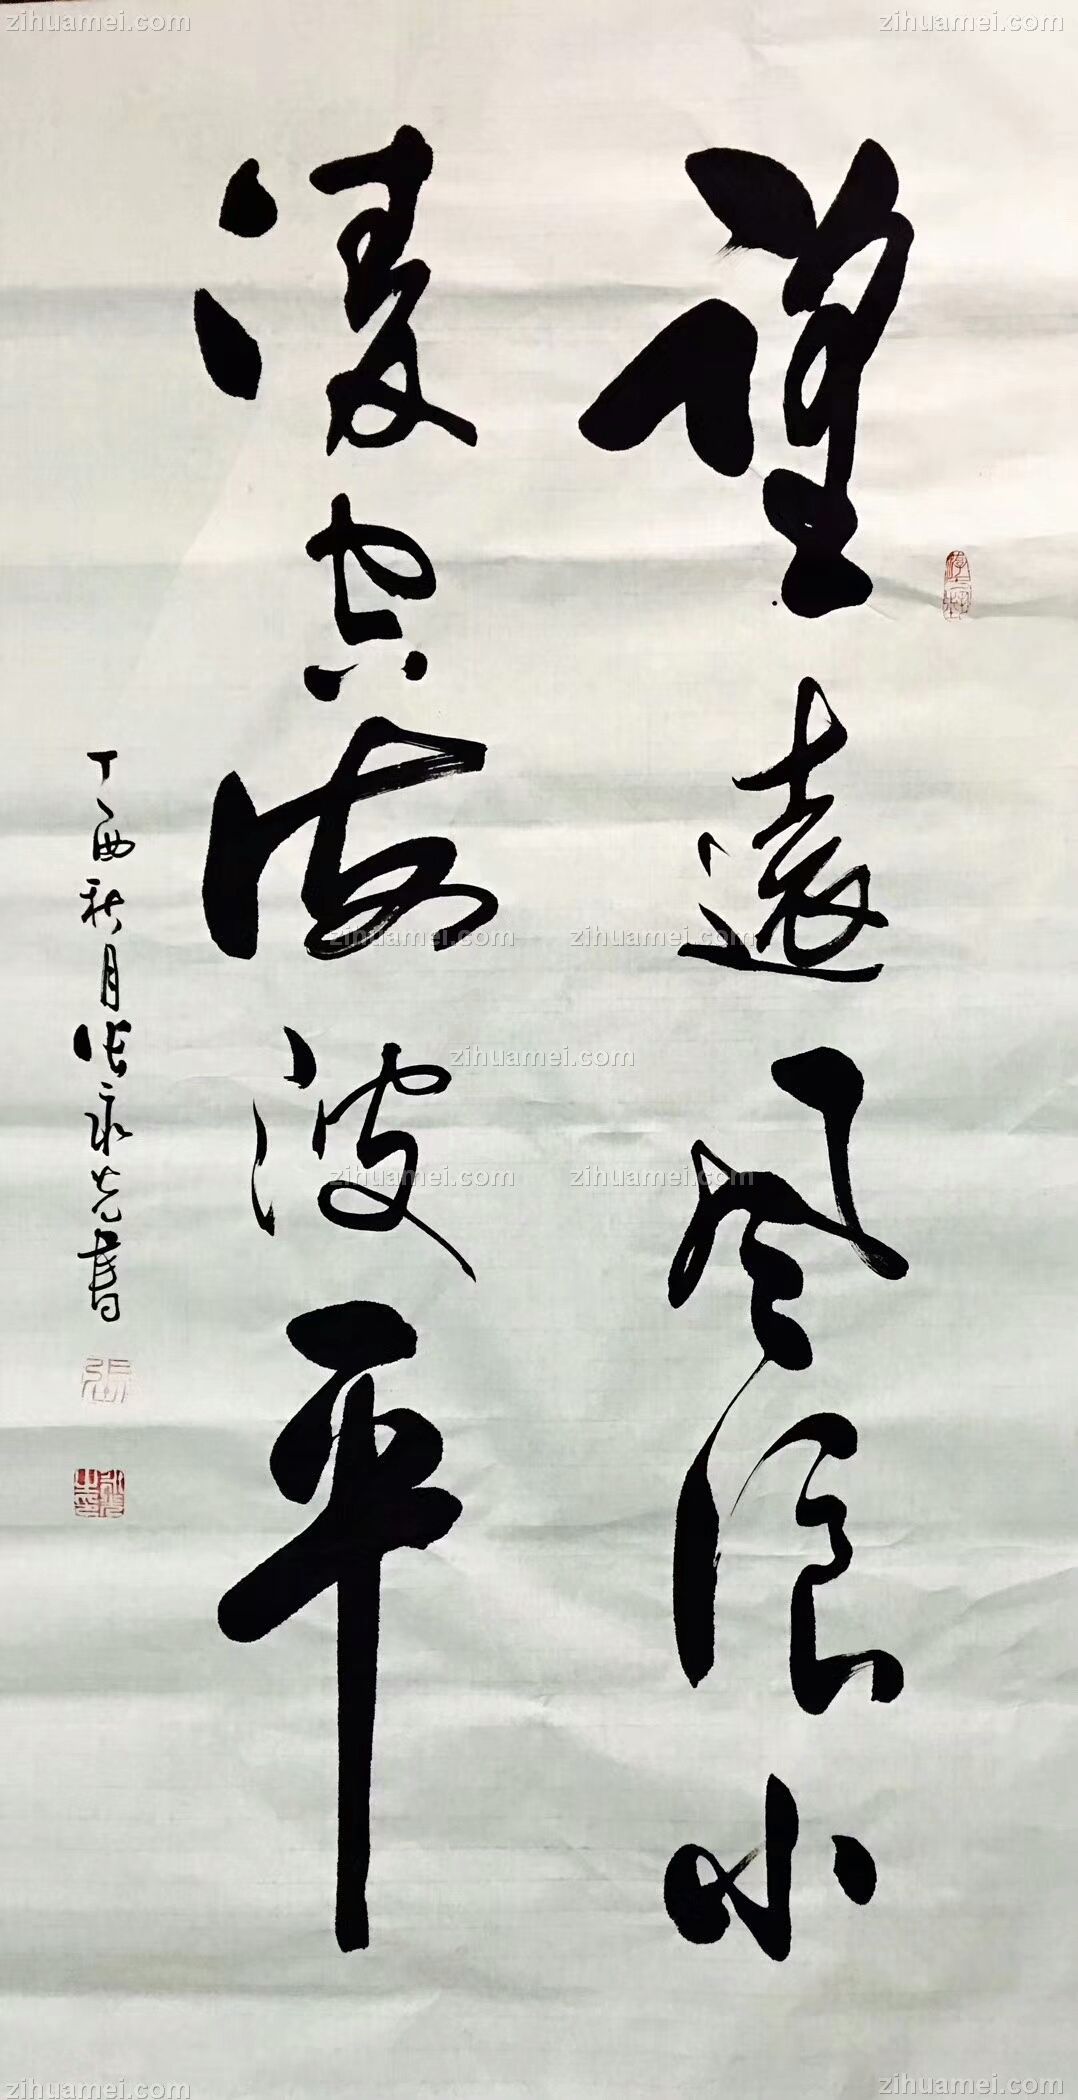 zihuamei.com zihuamei.com
望遠风浪小
凌空海波平
丁酉秋月张永光書
zihuamei.com zihuamei.com
zihuamei.com
zihuamei.com zihuamei.com
zihuamei.com zihuamei.com